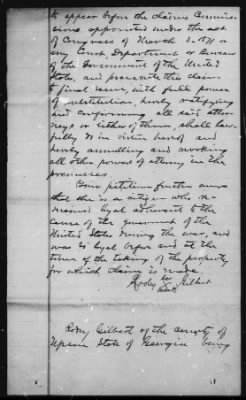 to appear before the claims Commis-
sions appointed under the act
of Congress of March 3. 1871 or
any Court, Department or Bureau
of the Government of the United
States, and prosecute this claim
to final issue, with full power
of substitution, hereby ratifying
and confirming all said attor-
neys or either of them shall law-
fully do in their behalf and
hereby annulling and revoking
all other powers of attorney in the
premises.
Your petitioner further avers
that she is a citizen who re-
mained loyal adherent to the
cause of the Government of the
United States during the war, and
was so loyal before and at the
time of the taking of the property
for which claim is made.
her
Gilbert
mark
Gilbert of the county of
Upson State of Georgia being